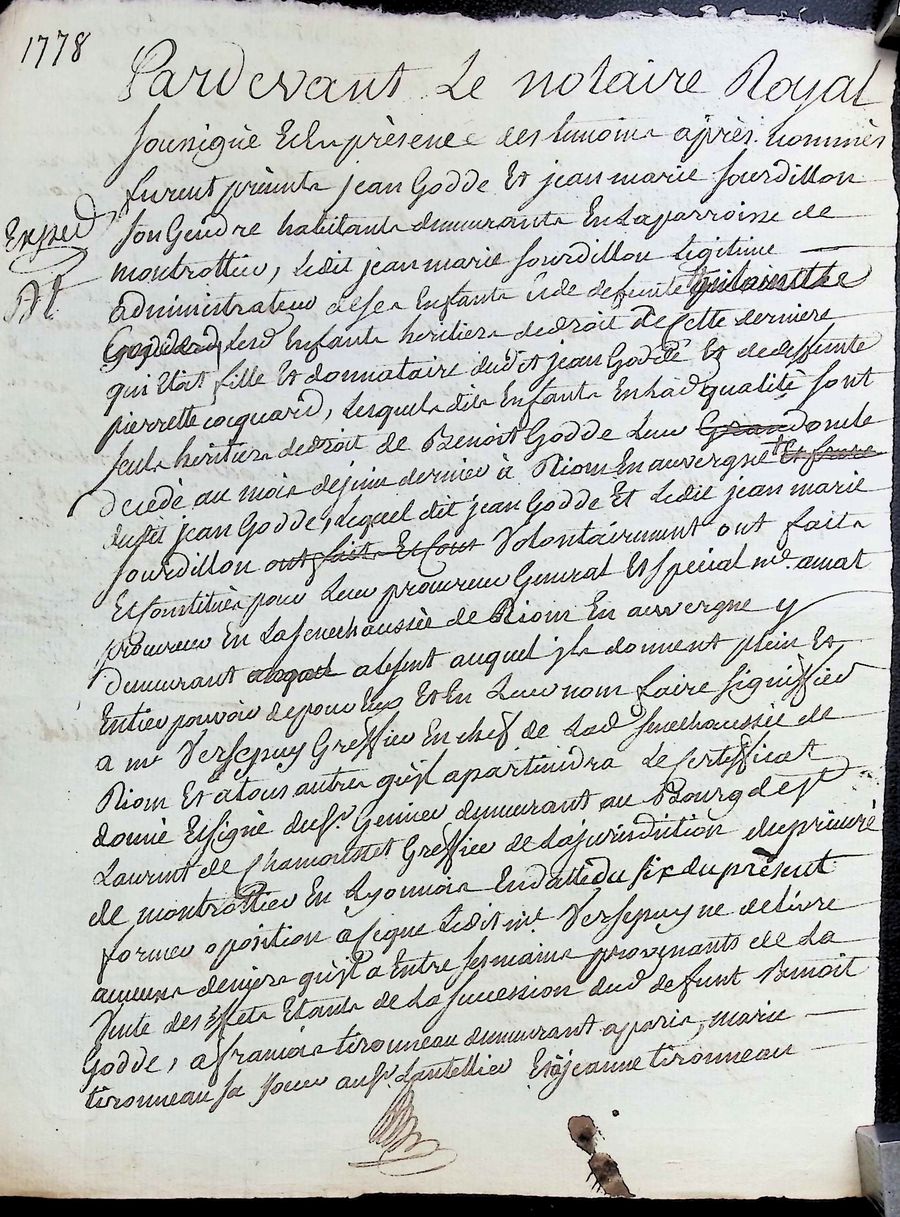 1778
Pardevant Le notaire Royal
soussigné Et En présence des temoins après nommés
furent présents jean Godde Et jean marie sourdillon
Exped
son Gendre habitants demeurants En La parroisse de
montrottier, Ledit jean marie sourdillon Legitime
administrateur de ses Enfants Et de defunte
Lesd Enfants heritiers de droit de Cette derniere
qui Etoit fille Et donnataire dudet jean Godde Et de deffunte
pierrette cocquard, Lesquels dits Enfants En Lad qualité sont
seuls heritiers de droit de Benoit Godde Leur Grand oncle
decédé au mois de juin dernier à Riom En auvergne Et frere
dudit jean Godde, Lequel dit jean Godde Et Ledit jean marie
sourdillon ont faits Et font Volontairement ont faits
Et Constitués pour Leur procureur General Et special me. amat
procureur En La Senechaussée de Riom En auvergne y
demeurant auquel absent auquel jls donnent plein Et
Entier pouvoir de pour Eux Et En Leur nom faire signiffier
a me Versepuy Greffier En chef de Lad Senechaussée de
Riom Et a tous autres qu'jl apartiendra Le Certifficat
donné Et signé du sr. Genier demeurant au Bourg de st
Laurent de Chamousset Greffier de La jurisdiction du prieuré
de montrottier En Lyonnois En datte du six du présent
former oposition à Ceque Ledit me. Versepuy ne delivre
aucuns deniers qu'jl a Entre ses mains provenants de La
Vente des Effets Etants de La succession dud defunt Benoit
Godde, a francois tironneau demeurant a paris, marie
tironneau sa soeur au sr. Lantellier Et à jeanne tironneau